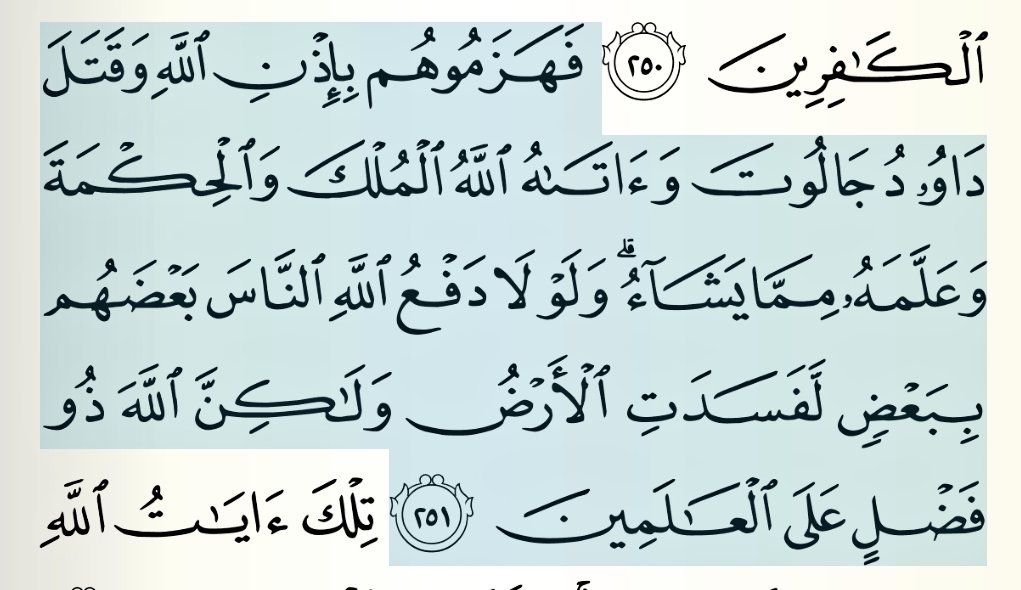 ٱلۡكَٰفِرِينَ ٢٥٠ فَهَزَمُوهُم بِإِذۡنِ ٱللَّهِ وَقَتَلَ
دَاوُۥدُ جَالُوتَ وَءَاتَىٰهُ ٱللَّهُ ٱلۡمُلۡكَ وَٱلۡحِكۡمَةَ
وَعَلَّمَهُۥ مِمَّا يَشَآءُۗ وَلَوۡلَا دَفۡعُ ٱللَّهِ ٱلنَّاسَ بَعۡضَهُم
بِبَعۡضٖ لَّفَسَدَتِ ٱلۡأَرۡضُ وَلَٰكِنَّ ٱللَّهَ ذُو
فَضۡلٍ عَلَى ٱلۡعَٰلَمِينَ ٢٥١ تِلۡكَ ءَايَٰتُ ٱللَّهِ